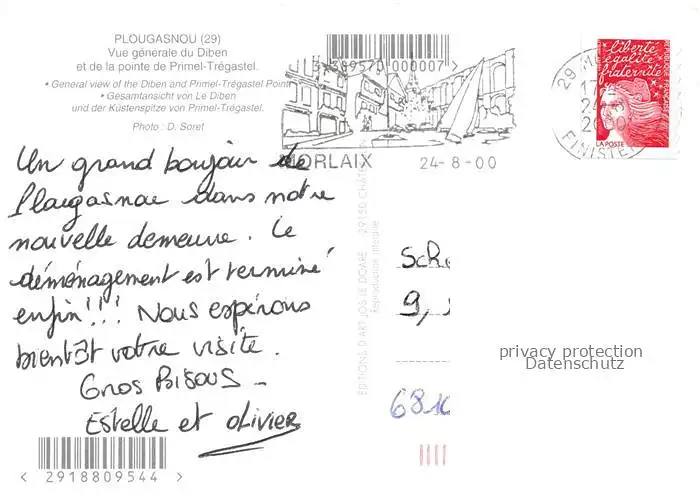 PLOUGASNOU (29)
Vue générale du Diben
et de la pointe de Primel-Trégastel.
• General view of the Diben and Primel-Trégastel Point
• Gesamtansicht von Le Diben
und der Küstenspitze von Primel-Trégastel.
Photo : D. Soret
Un grand bonjour de
Plougasnou dans notre
nouvelle demeure. Le
déménagement est terminé
enfin!!! Nous espérons
bientôt votre visite.
Gros Bisous -
Estelle et Olivier
2918809544
000007
MORLAIX
24-8-00
29
FINISTE
liberté
égalité
fraternité
LA POSTE
EDITIONS D'ART JOS LE DOARE - 29150 CHÂTEAULIN
Reproduction interdite
Sch
9,
68
privacy protection
Datenschutz